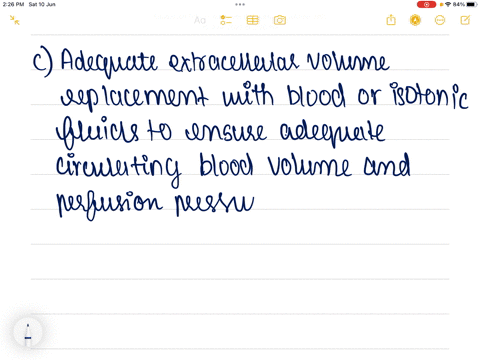 2:26 PM Sat 10 Jun
84%
Aa
c) Adequate extracellular volume
replacement with blood or isotonic
fluids to ensure adequate
circulating blood volume and
perfusion pressu